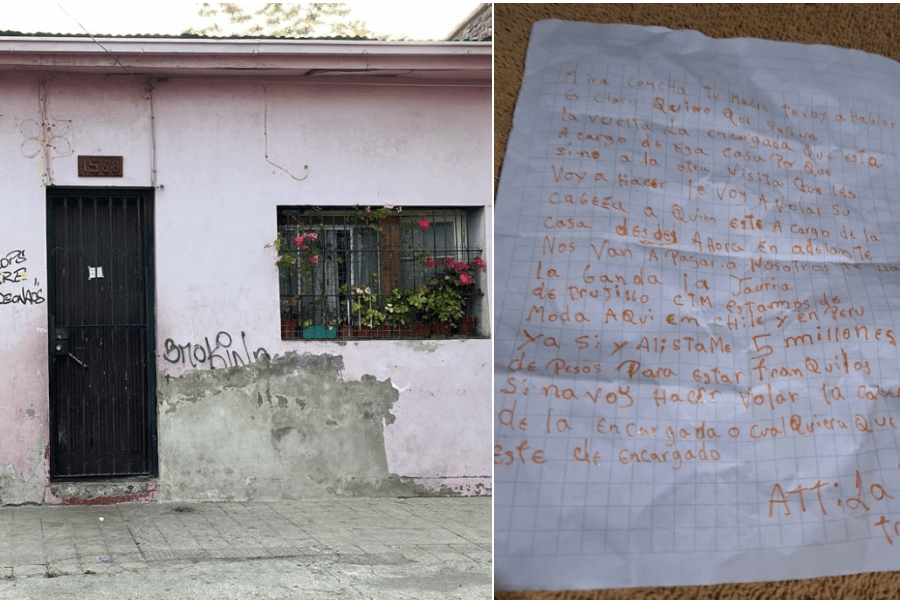 1568
SMOKING
Mira concha tu madre te voy a hablar
es claro Quiero Que saque
la vuelta la encargada Que esta
A cargo de Esa Casa Por Que
sino a la otra Visita Que les
Voy a Hacer le Voy A Volar Su
CabeZa a Quien este A cargo de la
Casa desdes Ahora En adelante
Nos Van A Pagar a Nosotros
la banda la Jauria
de trujillo CTM Estamos de
Moda AQui Em cHile y en Peru
Ya Si y Alistame 5 millones
de Pesos Para Estar tranQuilos
Si na voy Hacer Volar la
De la Encargada o cualQuiera Que
Este de Encargado
ATTila